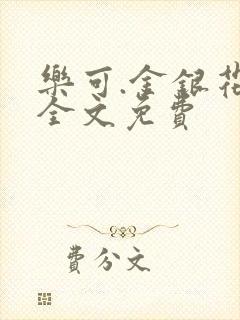 樂可.金銀花
全文免費
費分文